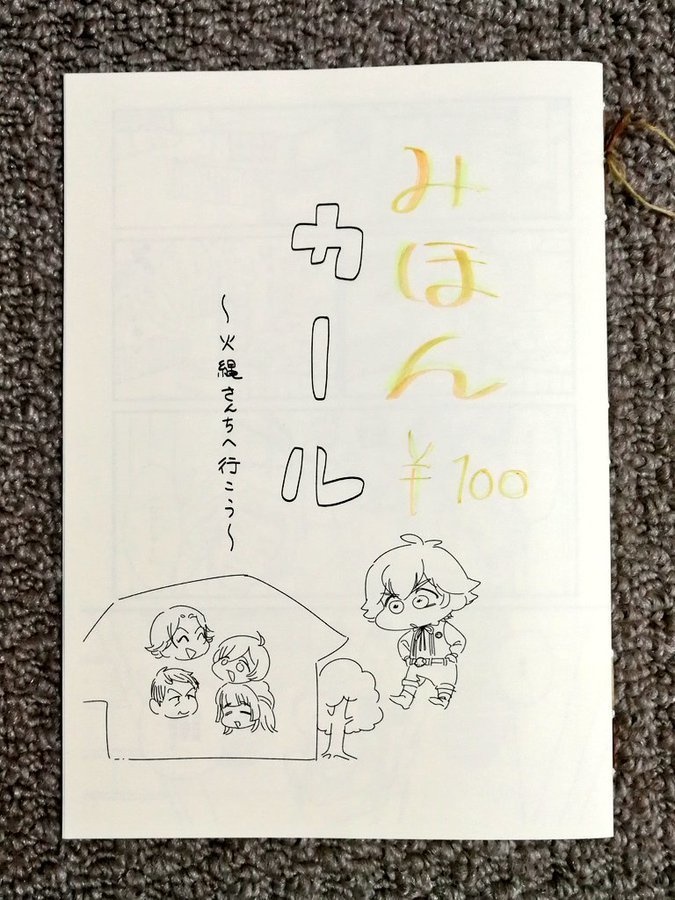 みほん
¥100
カール
～火縄さんちへ行こう～